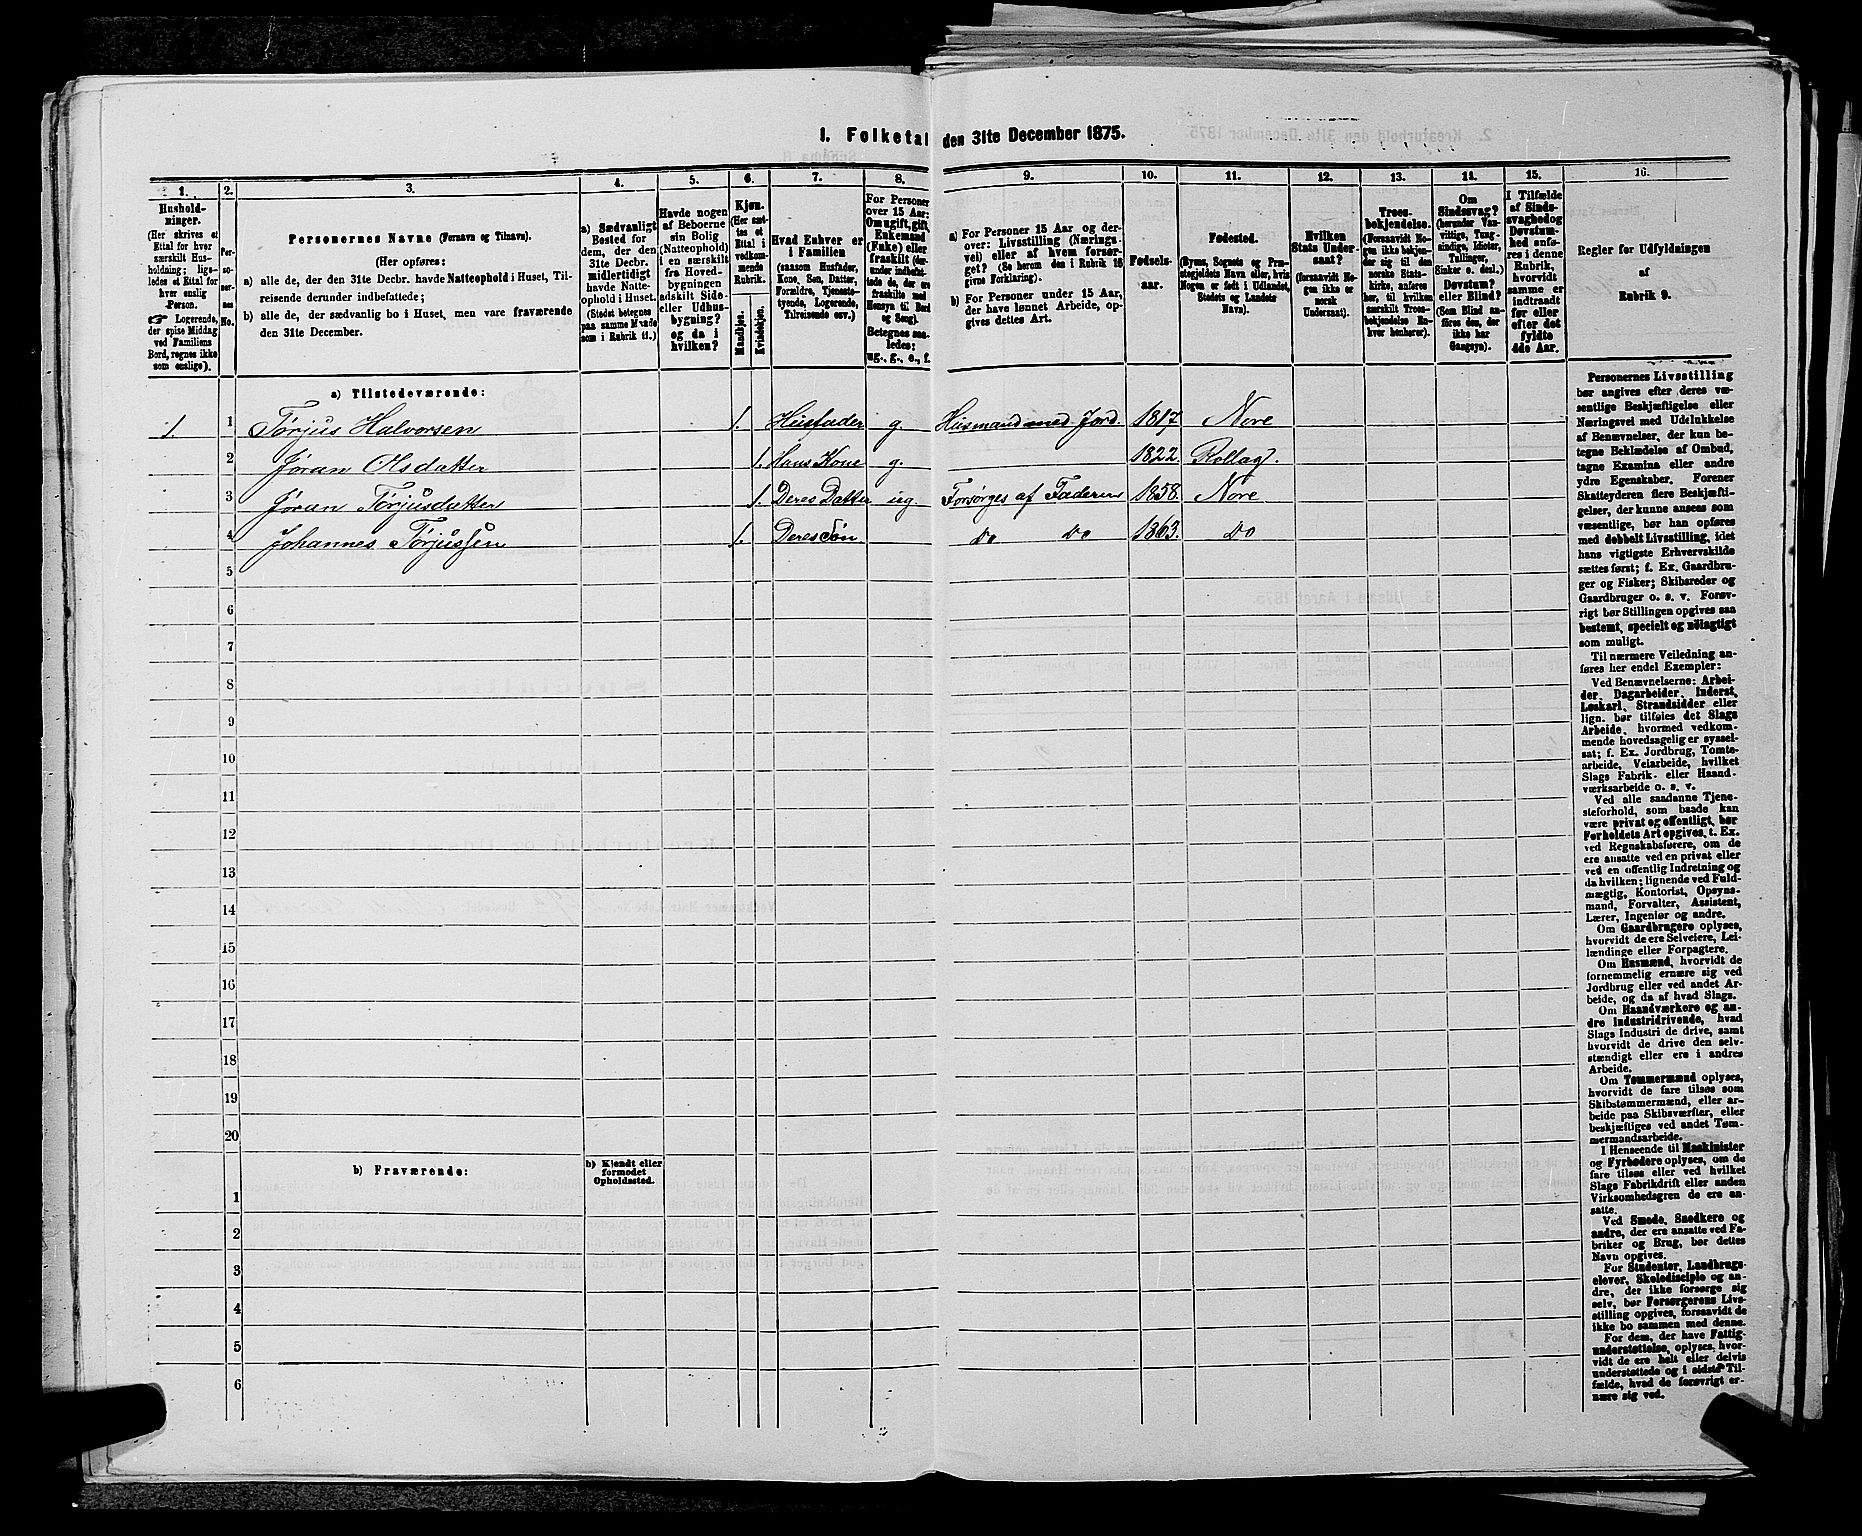 1. Folketal den 31te December 1875.
1. 2. 3. 4. 5. 6. 7. 8. 9. 10. 11. 12. 13. 14. 15. 16.
Hushold-
ninger.
(Her skrives et
Ettal for hver
særskilt Hus-
holdning; ligs-
ledes et Ettal for
hver enslig
Person.
☞ Logerende,
der spise Middag
ved Familiens
Bord, regnes ikke
som enslige).
Per-
so-
ner-
nes
No.
Personernes Navne (Fornavn og Tilnavn).
(Her opføres:
a) alle de, der den 31te Decbr. havde Natteophold i Huset, Til-
reisende derunder indbefattede;
b) alle de, der sædvanlig bo i Huset, men vare fraværende
den 31te December.
a) Sædvanligt
Bosted for
dem, der den
31te Decbr.
midlertidigt
havde Natte-
ophold i Huset.
(Stedet betegnes
paa samme Maade
som i Rubrik 11.)
Havde nogen
af Beboerne
sin Bolig
(Natteophold)
i en særskilt
fra Hoved-
bygningen
adskilt Side-
eller Udhus-
bygning?
og da i
hvilken?
Kjøn.
(Her sæt-
tes et
Ettal i
vedkom-
mende
Rubrik.
Mandkjøn.
Kvindekjøn.
Hvad Enhver er
i Familien
(saasom Husfader,
Kone, Søn, Datter,
Forældre, Tjeneste-
tyende, Logerende,
Tilreisende osv.)
For Personer
over 15 Aar:
Om ugift, gift,
Enkemand
(Enke) eller
fraskilt (der-
under indbefat-
tede de, der ere
fraskilte med
Hensyn til Bord
og Seng).
Betegnes saa-
ledes:
ug., g., e., f.
a) For Personer 15 Aar og der-
over: Livsstilling (Nærings-
vei) eller af hvem forsør-
get? (Se herom den i Rubrik 16
givne Forklaring).
b) For Personer under 15 Aar,
der have lønnet Arbeide, op-
gives dettes Art.
Fødsels-
aar.
Fødested.
(Byens, Sognets og Præ-
stegjeldets Navn eller, hvis
Nogen er født i Udlandet,
Stedets og Landets
Navn).
Hvilken
Stats Under-
saat?
(forsaavidt No-
gen ikke er
norsk
Undersaat).
Troes-
bekjendelse.
(Forsaavidt No-
gen ikke bekjen-
der sig til den
norske Stats-
kirke, anføres
her, til hvilken
særskilt Troes-
bekjendelse En-
hver henhører).
Om
Sindssvag?
(herunder Van-
vittige, Tung-
sindige, Idioter,
Tullinger,
Sinker o. desl.)
Døvstum?
eller Blind?
(Som Blind an-
føres den, der
ikke har
Gangsyn).
I Tilfælde
af Sinds-
svaghed og
Døvstum-
hed anfø-
res i denne
Rubrik,
hvorvidt
samme er
indtraadt
før eller
efter det
fyldte
4de Aar.
Regler for Udfyldningen
af
Rubrik 9.
a) Tilstedeværende:
1. 1 Torjus Halvorsen 1. Husfader g. Husmand med Jord. 1817. Nore
2 Jøran Olsdatter 1. Hans Kone g. 1822. Rollag.
3 Jøran Torjusdatter 1. Deres Datter ug. Forsørges af Faderen 1858. Nore
4 Johannes Torjussen 1. Deres Søn do do 1863. do
5
6
7
8
9
10
11
12
13
14
15
16
17
18
19
20
b) Fraværende:
b) Kjendt eller
formodet
Opholdssted.
1
2
3
4
5
6
Personernes Livsstilling
bør angives efter deres væ-
sentlige Beskjæftigelse eller
Næringsvei med Udelukkelse
af Benævnelser, der kun be-
tegne Beklædelse af Ombud,
tagne Examina eller andre
ydre Egenskaber. Forener
Skatteyderen flere Beskjæfti-
gelser, der kunne ansees som
væsentlige, bør han opføres
med dobbelt Livsstilling, idet
hans vigtigste Erhvervskilde
sættes først; f. Ex. Gaardbru-
ger og Fisker; Skibsreder og
Gaardbruger o. s. v. Forøv-
rigt bør Stillingen opgives saa
bestemt, specielt og nøiagtigt
som muligt.
Til nærmere Veiledning an-
føres her endel Exempler:
Ved Benævnelserne: Arbei-
der, Dagarbeider, Inderst,
Løskarl, Strandsidder eller
lign. bør tilføies det Slags
Arbeide, hvormed vedkom-
mende hovedsagelig er syssel-
sat; f. Ex. Jordbrug, Tomte-
arbeide, Veiarbeide, hvilket
Slags Fabrik- eller Haand-
værksarbeide o. s. v.
Ved alle saadanne Tjene-
steforhold, som baade kan
være privat og offentligt, bør
Forholdets Art opgives, t. Ex.
ved Regnskabsførere, om de
ere ansatte ved en privat eller
ved en offentlig Indretning og
da hvilken; lignende ved Fuld-
mægtig, Kontorist, Opsyns-
mand, Forvalter, Assistent,
Lærer, Ingeniør og andre.
Om Gaardbrugere oplyses,
hvorvidt de ere Selveiere, Lei-
lændinge eller Forpagtere.
Om Husmænd, hvorvidt de
fornemmelig ernære sig ved
Jordbrug eller ved andet Ar-
beide, og da af hvad Slags.
Om Haandværkere og an-
dre Industridrivende, hvad
Slags Industri de drive, samt
hvorvidt de drive den selv-
stændigt eller ere i andres
Arbeide.
Om Tømmermænd oplyses,
hvorvidt de fare tilsøs som
Skibstømmermænd, eller ar-
beide paa Skibsværfter, eller
beskjæftiges ved andet Tøm-
mermandsarbeide.
I Henseende til Maskinister
og Fyrbødere oplyses, om de
fare tilsøs eller ved hvilket
Slags Fabrikdrift eller anden
Virksomhedsgren de ere an-
satte.
Ved Smede, Snedkere og
andre, der ere ansatte ved Fa-
briker og Brug, bør dettes
Navn opgives.
For Studenter, Landbrugs-
elever, Skoledisciple og an-
dre, der ikke forsørge sig
selv, bør Forsørgerens Livs-
stilling opgives, forsaavidt de
ikke bo sammen med denne.
For dem, der have Fattig-
understøttelse, oplyses, hvor-
vidt de ere helt eller delvis
understøttede og i sidste Til-
fælde, hvad de forøvrigt er-
nære sig ved.